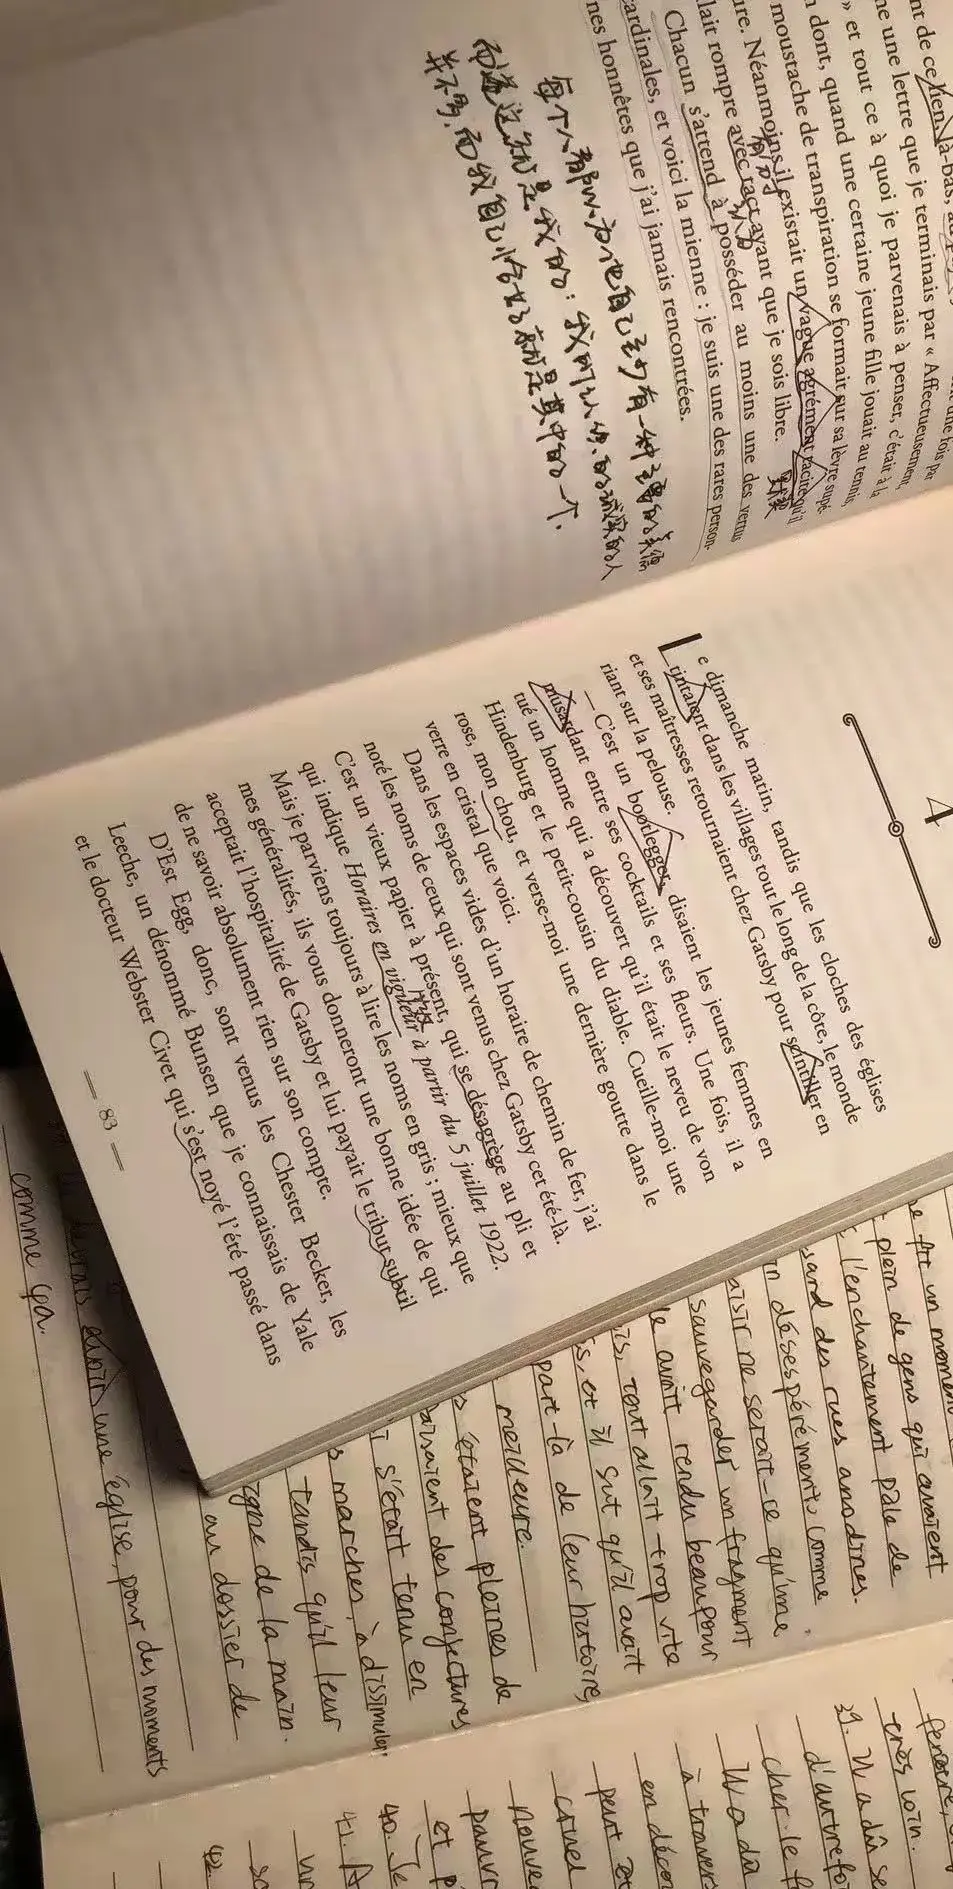 nt de ce lien. Là-bas,
ne une lettre que je terminais par « Affectueusement,
» et tout ce à quoi je parvenais à penser, c'était à la
n dont, quand une certaine jeune fille jouait au tennis,
moustache de transpiration se formait sur sa lèvre supé-
ure. Néanmoins il existait un vague agrément tacite qu'il
lait rompre avec tact avant que je sois libre.
Chacun s'attend à posséder au moins une des vertus
cardinales, et voici la mienne : je suis une des rares person-
nes honnêtes que j'ai jamais rencontrées.
每个人都以为他自己至少有一种主要的美德
而这就是我的：我所认识的诚实的人
并不多，而我自己恰好就是其中的一个.
4
Le dimanche matin, tandis que les cloches des églises
tintaient dans les villages tout le long de la côte, le monde
et ses maîtresses retournaient chez Gatsby pour scintiller en
riant sur la pelouse.
— C'est un bootlegger, disaient les jeunes femmes en
musardant entre ses cocktails et ses fleurs. Une fois, il a
tué un homme qui a découvert qu'il était le neveu de von
Hindenburg et le petit-cousin du diable. Cueille-moi une
rose, mon chou, et verse-moi une dernière goutte dans le
verre en cristal que voici.
Dans les espaces vides d'un horaire de chemin de fer, j'ai
noté les noms de ceux qui sont venus chez Gatsby cet été-là.
C'est un vieux papier à présent, qui se désagrège au pli et
qui indique Horaires en vigueur à partir du 5 juillet 1922.
Mais je parviens toujours à lire les noms en gris ; mieux que
mes généralités, ils vous donneront une bonne idée de qui
acceptait l'hospitalité de Gatsby et lui payait le tribut subtil
de ne savoir absolument rien sur son compte.
D'Est Egg, donc, sont venus les Chester Becker, les
Leeche, un dénommé Bunsen que je connaissais de Yale
et le docteur Webster Civet qui s'est noyé l'été passé dans
— 83 —
un moment
plein de gens qui avaient
l'enchantement pâle de
sand des rues anodines.
n désespérément, comme
aisir ne serait-ce qu'une
sauvegarder un fragment
le avait rendu beau pour
is, tout allait trop vite
s, et il sut qu'il avait
part-là de leur histoire,
meilleure.
s étaient pleines de
des conjectures
i s'était tenu en
s marches, à dissimuler
tandis qu'il leur
igne de la main.
au dossier de
une église, pour des moments
comme ça.
très loin.
39. Il a dû se
d'autrefoi
cher le f
Il a dû
à travers
en décon
peut êt
cruel
nouve
pauvr
et p
40. Je
41. A
42.